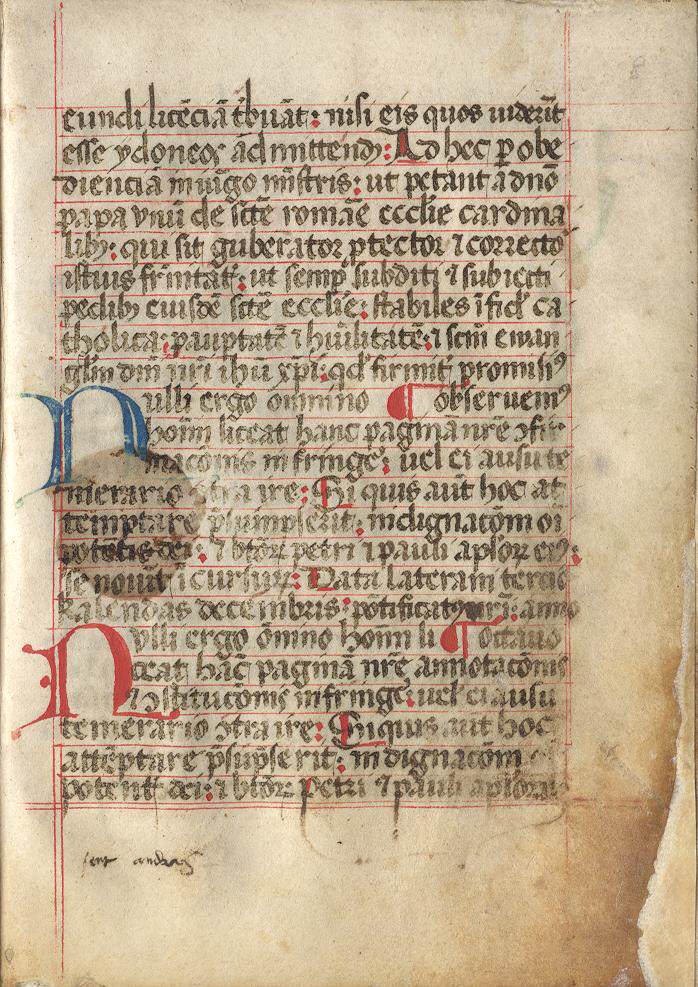 eundi licēciā t̄buāt: nisi eis quos uiderīt
esse ydoneos ād mittendū: Ad hec p obe
dienciā iniūgo mīstris: ut petant a dn̄o
papa vnū de sc̄te romāe eccl̄ie cardina
libȝ: qui sit guberator ꝓtector ⁊ correcto
istius fr̄nitat̄: ut semp̄ subditi ⁊ subiecti
pedibȝ eiusdē sc̄te eccl̄ie: stabiles ī fide ca
tholica: paup̄tatē ⁊ hūilitatē: ⁊ sc̄m ewan
gl̄m dn̄i nr̄i ihū xp̄i: qd̄ firmit̄ promisiꝰ
ulli ergo om̄ino ¶ obseruemꝰ
N hoīm liceat hanc paginā nr̄e ꝯfir
macōnis infringe: uel ei ausu te
merario ꝯtra ire: Si quis aūt hoc at
temptare p̄sumpserit: indignacōm oī
potētis dei: ⁊ btōꝝ petri ⁊ pauli apl̄oꝝ eiꝰ:
se nouīt īcursurū: Data laterani tercio
kalendas decembris: pōtificatꝰ nr̄i: anno
Nvlli ergo ōmino hoīm li ¶ octauo
ceat hāc paginā nr̄e annotacōnis
⁊ ꝯstitucōnis infringe: uel ei ausu
temerario ꝯtra ire: Si quis aūt hoc
attēptare p̄sūpserit: indignacōm
potent̄ dei: ⁊ btōꝝ petri ⁊ pauli apl̄oꝝ